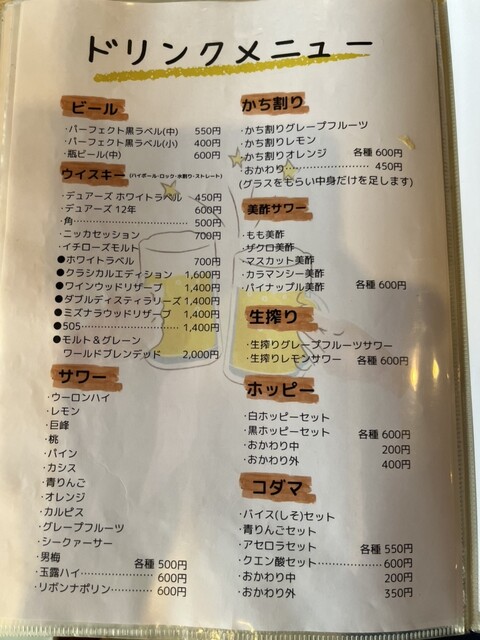 ドリンクメニュー
ビール
・パーフェクト黒ラベル(中) 550円
・パーフェクト黒ラベル(小) 400円
・瓶ビール(中) 600円
ウイスキー (ハイボール・ロック・水割り・ストレート)
・デュアーズ ホワイトラベル 450円
・デュアーズ 12年 600円
・角………………………… 500円
・ニッカセッション 700円
・イチローズモルト
●ホワイトラベル 700円
●クラシカルエディション 1,600円
●ワインウッドリザーブ 1,400円
●ダブルディスティラリーズ 1,400円
●ミズナラウッドリザーブ 1,400円
●505………………… 1,400円
●モルト＆グレーン
ワールドブレンデッド 2,000円
サワー
・ウーロンハイ
・レモン
・巨峰
・桃
・パイン
・カシス
・青りんご
・オレンジ
・カルピス
・グレープフルーツ
・シークァーサー
・男梅 各種 500円
・玉露ハイ……………… 600円
・リボンナポリン………… 600円
かち割り
・かち割りグレープフルーツ
・かち割りレモン
・かち割りオレンジ 各種 600円
・おかわり………………… 450円
(グラスをもらい中身だけを足します)
美酢サワー
・もも美酢
・ザクロ美酢
・マスカット美酢
・カラマンシー美酢
・パイナップル美酢 各種 600円
生搾り
・生搾りグレープフルーツサワー
・生搾りレモンサワー 各種 600円
ホッピー
・白ホッピーセット
・黒ホッピーセット 各種 600円
・おかわり中 200円
・おかわり外 400円
コダマ
・バイス(しそ)セット
・青りんごセット
・アセロラセット 各種 550円
・クエン酸セット……………… 600円
・おかわり中 200円
・おかわり外 350円